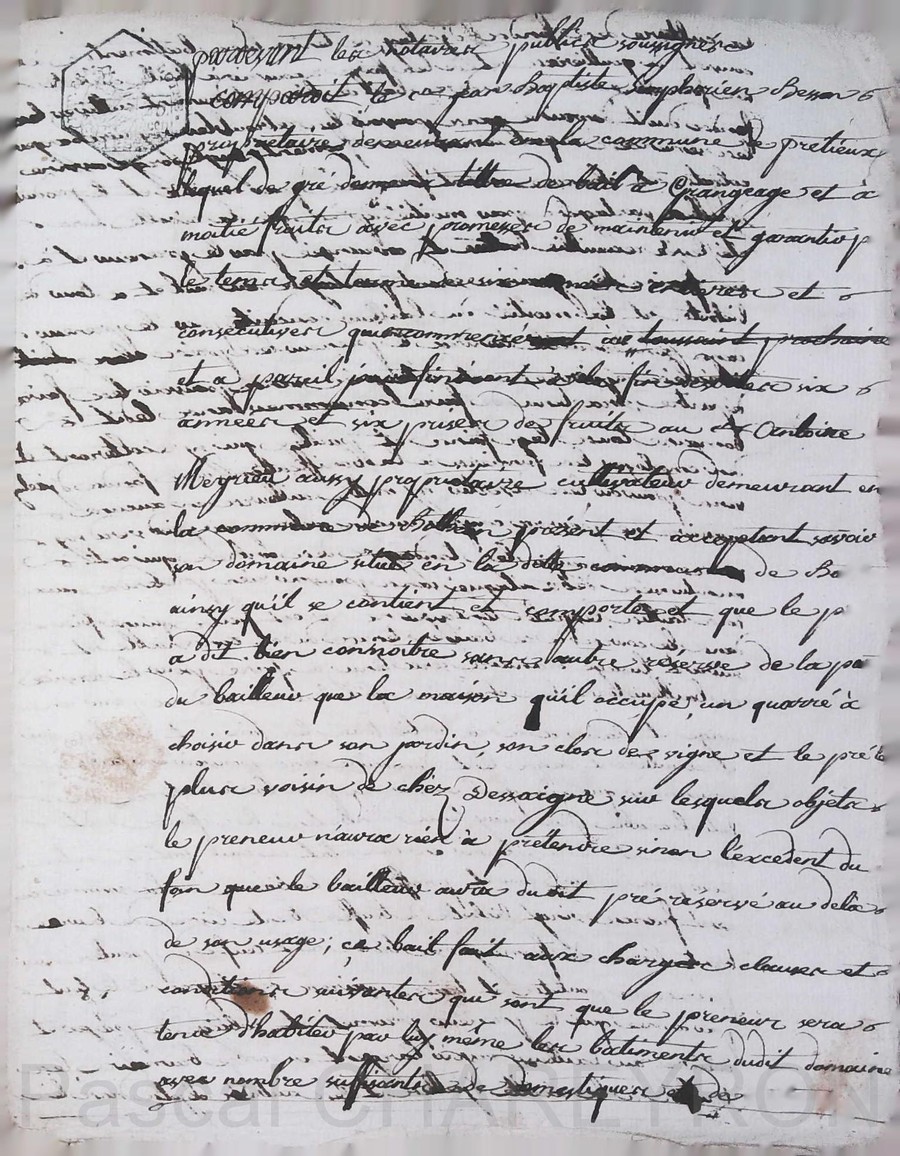 pardevant les notaires publics soussignés
comparoit le cn jean Baptiste Simphorien Besson
propriétaire demeurant en la commune de pretieux
lequel de gré demeure tittre de bail à Grangeage et à
moitié fruits avec promesse de maintenir et garantir p
le tems et
consecutives qui commenceront à la toussaint prochaine
et a pareil jour finiront à la fin desdites six
années et six prises de fruits au cn Antoine
Meyrieu aussy propriétaire cultivateur demeurant en
la commune de présent et acceptant savoir
son domaine situé en la ditte commune de Bo
ainsy qu'il se contient et comporte et que le p
a dit bien connoitre sans autre réserve de la pa
du bailleur que la maison qu'il occupe, un quarré à
choisir dans son jardin, son clos de vigne et le pré le
plus voisin de chéz Dessaigne sur lesquels objets
le preneur n'aura rien à prétendre sinon l'excedent du
foin que le bailleur aura dudit pré réservé au delà
de son usage; ce bail fait aux charges clauses et
conditions suivantes qui sont que le preneur sera
tenu d'habiter par luy même les batiments dudit domaine
avec nombre suffisant de domestiques de
Pascal CHAREYRON